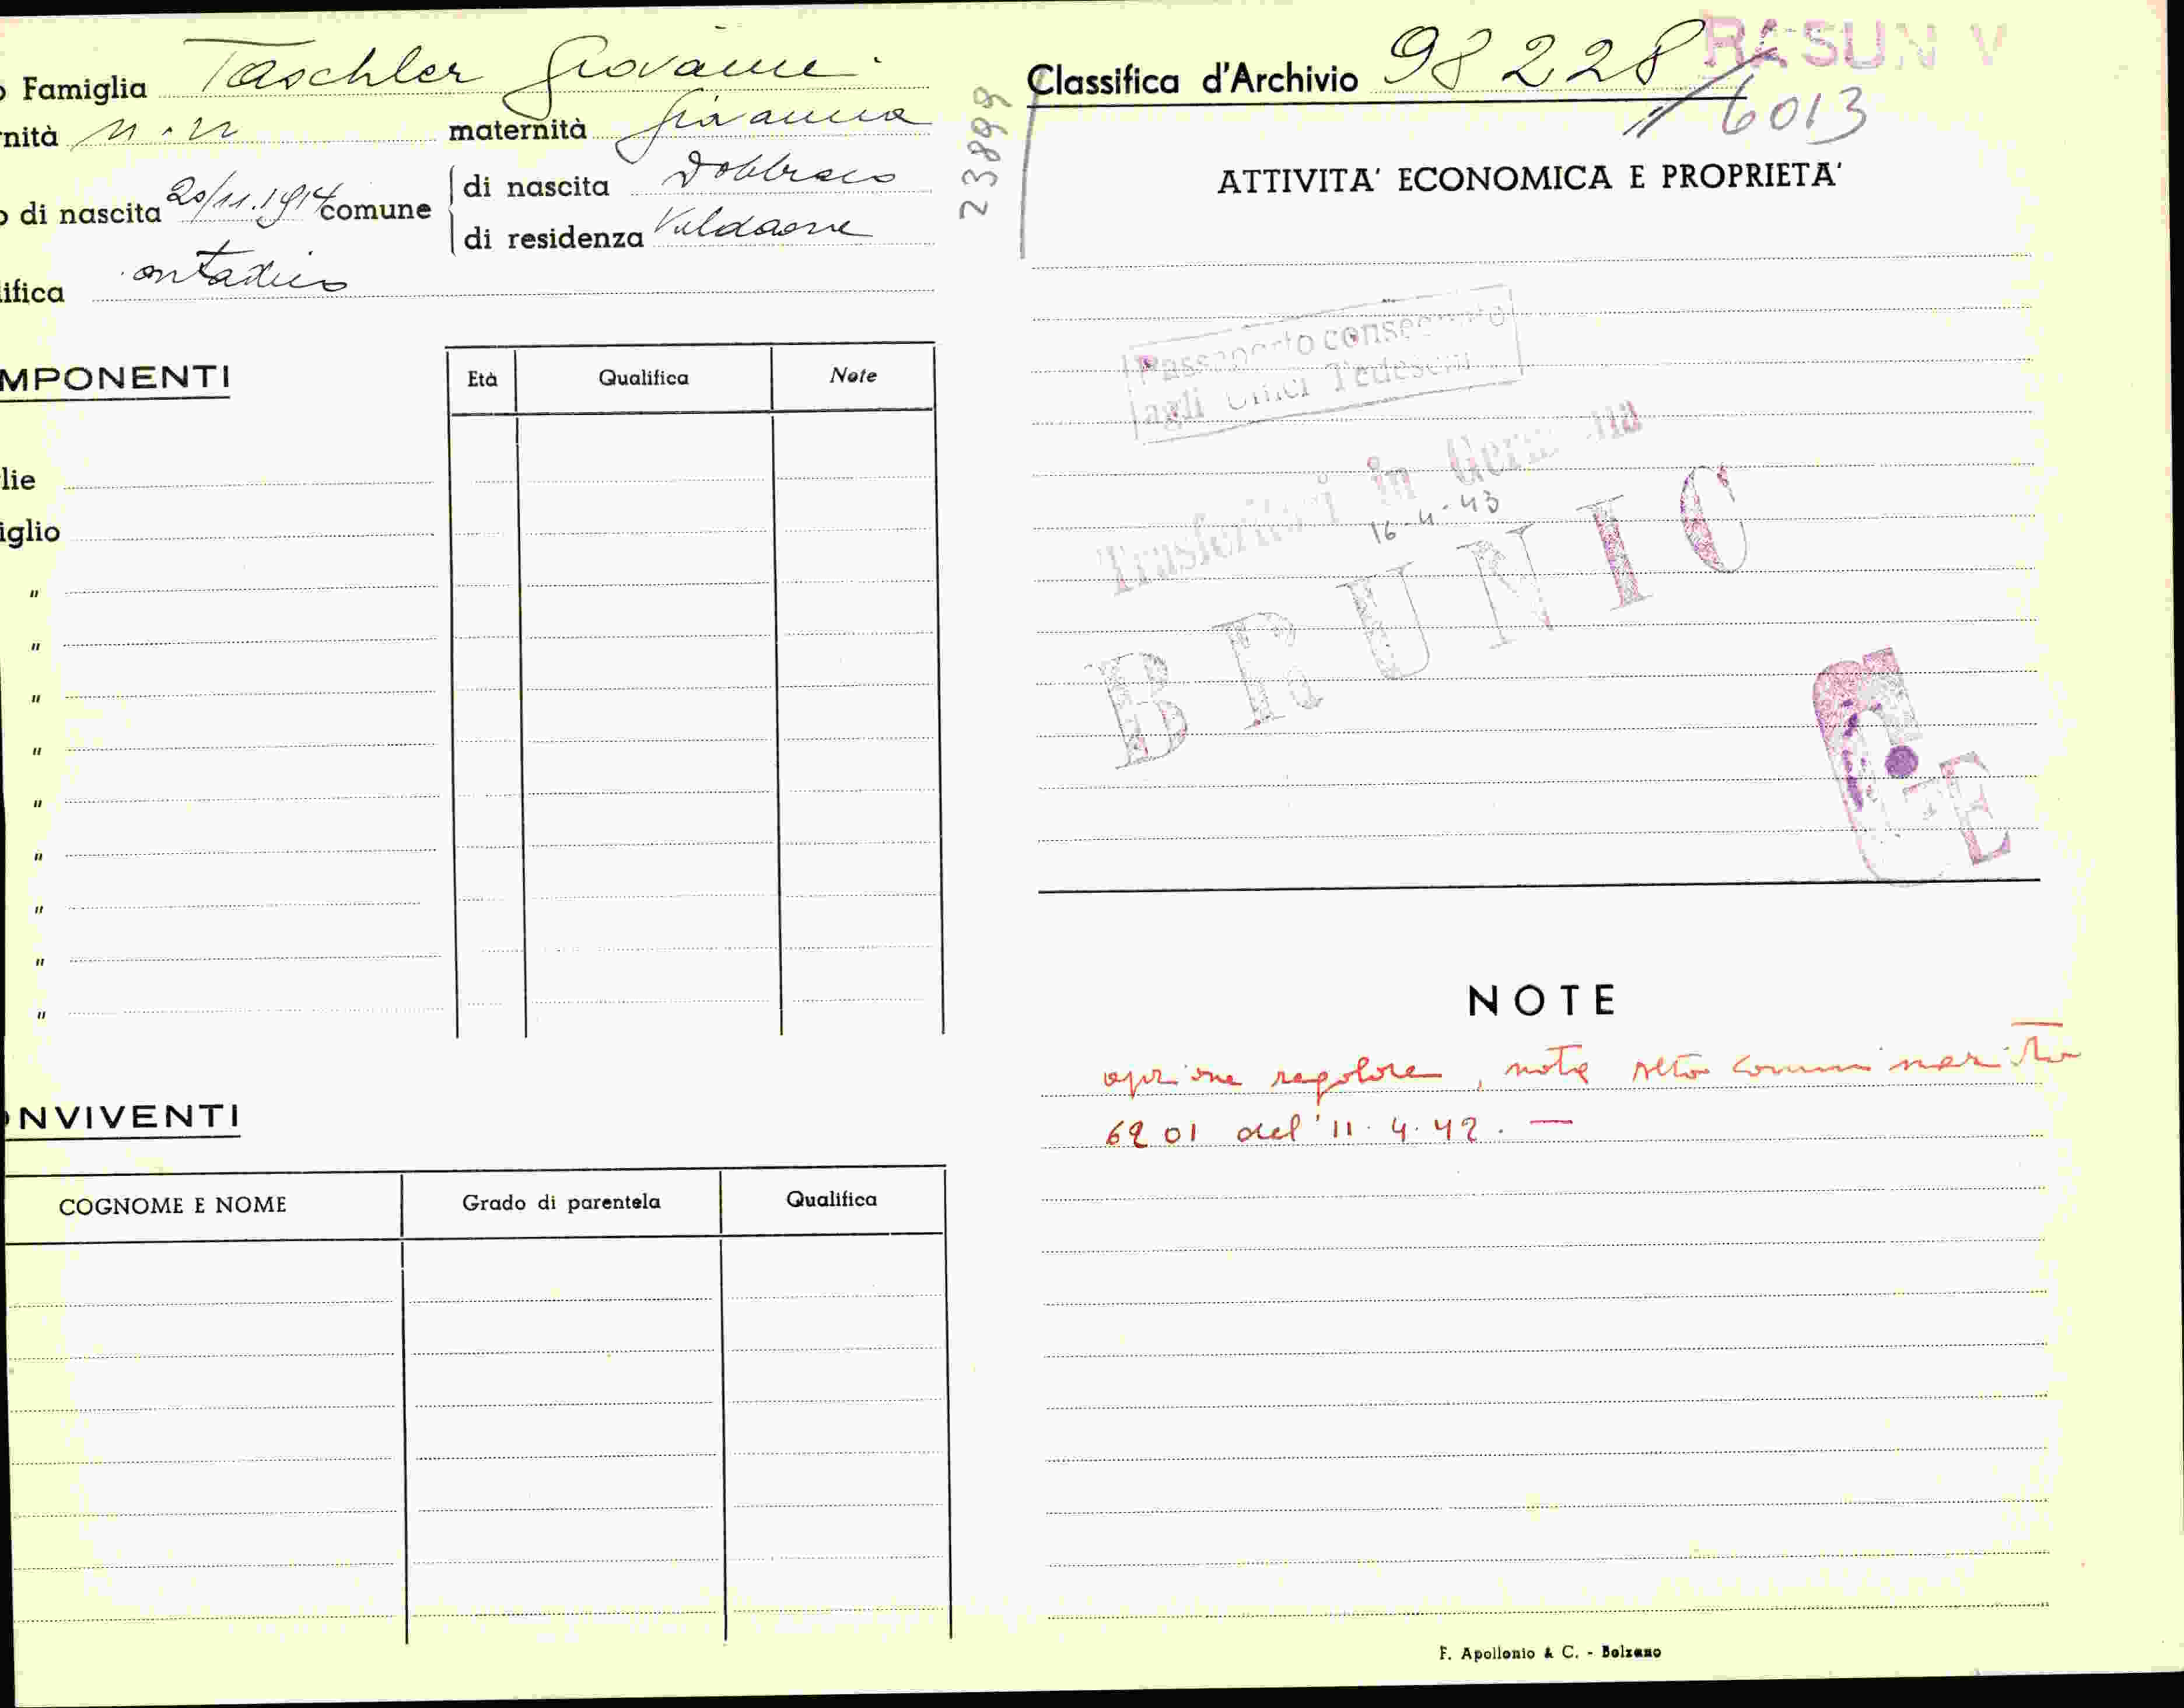 o Famiglia Taschler Giovanni
nità n.n maternità Giovanna
o di nascita 20/11.1914 comune
di nascita Dobbiaco
di residenza Valdaora
ifica ontadino
MPONENTI
Età Qualifica Note
lie
iglio
"
"
"
"
"
"
"
"
"
ONVIVENTI
COGNOME E NOME Grado di parentela Qualifica
23899
Classifica d'Archivio 98228
RASUN V
6013
ATTIVITA' ECONOMICA E PROPRIETA'
Passaporto consegnato
agli Uffici Tedeschi
Trasferitosi in Germania
16-4-43
BRUNIC
E
NOTE
opzione regolare, nota Alto Commissariato
6201 del '11.4.42. —
F. Apollonio & C. - Bolzano